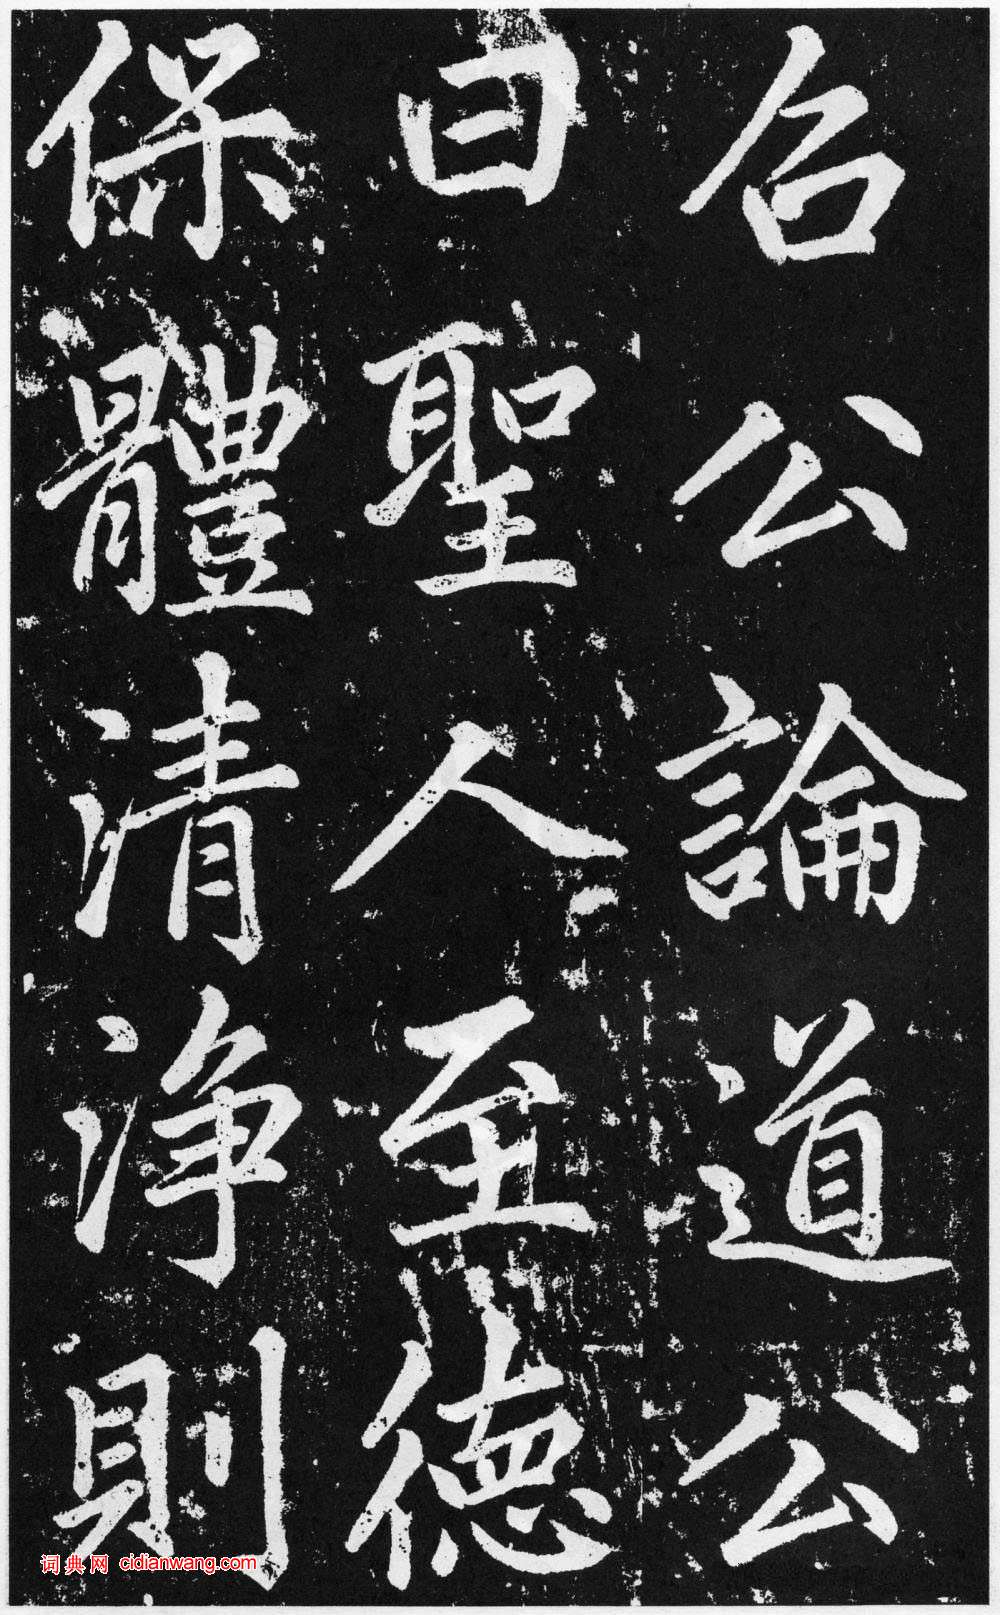 召公論道公
曰聖人至德
保體清净則
词典网 cidianwang.com